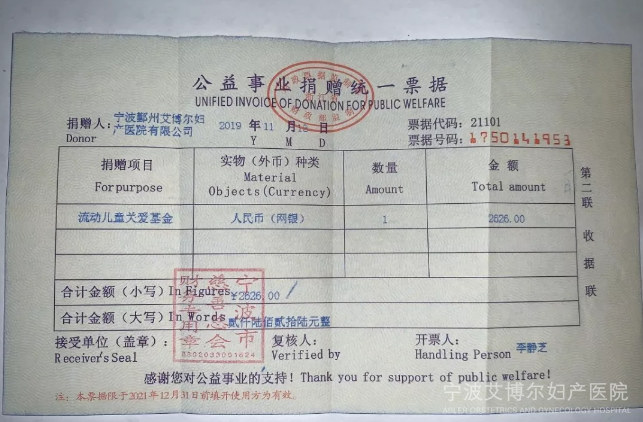 公益事业捐赠统一票据
UNIFIED INVOICE OF DONATION FOR PUBLIC WELFARE
捐赠人: 宁波鄞州艾博尔妇产医院有限公司
Donor
2019 年 11 月 日
Y M D
票据代码: 21101
票据号码: 1750141953
捐赠项目 实物（外币）种类 数量 金额
For purpose Material Objects(Currency) Amount Total amount
流动儿童关爱基金 人民币（网银） 1 2626.00
合计金额（小写）In Figures ¥2626.00
合计金额（大写）In Words 贰仟陆佰贰拾陆元整
接受单位（盖章）: 复核人: 开票人: 李静芝
Receiver's Seal Verified by Handling Person
感谢您对公益事业的支持！Thank you for support of public welfare!
注: 本票据限于2021年12月31日前填开使用方为有效。
第二联 收据联
宁波市慈善总会财务专用章
宁波艾博尔妇产医院
OBSTETRICS AND GYNECOLOGY HOSPITAL